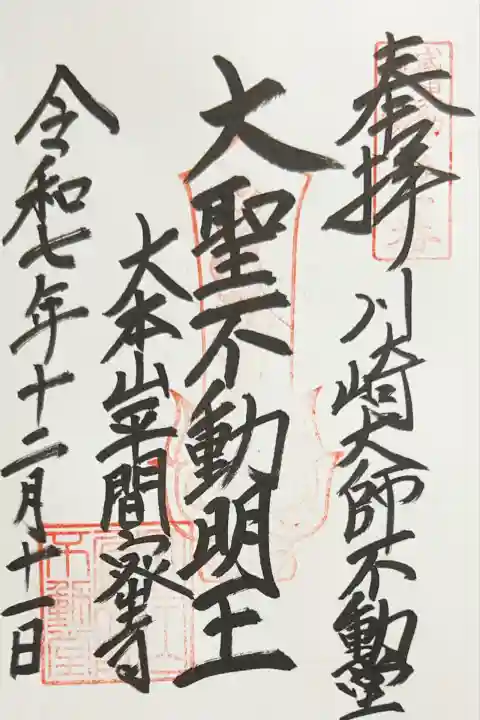 奉拝 川崎大師不動堂
大聖不動明王
大本山平間密寺
令和七年十二月二十一日
不動堂